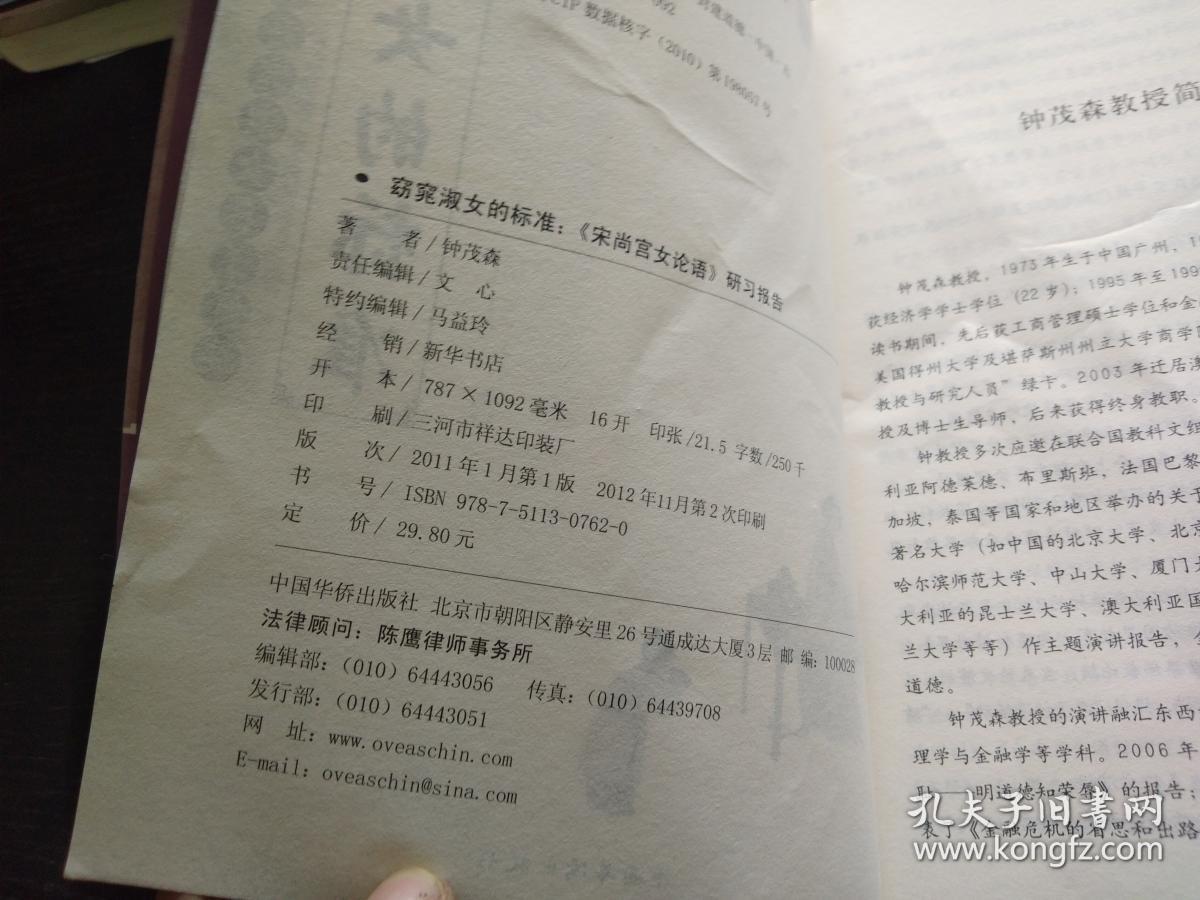 CIP数据核字(2010)第198067号
• 窈窕淑女的标准：《宋尚宫女论语》研习报告
著 者/钟茂森
责任编辑/文 心
特约编辑/马益玲
经 销/新华书店
开 本/787×1092毫米 16开 印张/21.5 字数/250千
印 刷/三河市祥达印装厂
版 次/2011年1月第1版 2012年11月第2次印刷
书 号/ISBN 978-7-5113-0762-0
定 价/29.80元
中国华侨出版社 北京市朝阳区静安里26号通成达大厦3层 邮编：100028
法律顾问：陈鹰律师事务所
编辑部：(010) 64443056 传真：(010) 64439708
发行部：(010) 64443051
网 址：www.oveaschin.com
E-mail：oveaschin@sina.com
钟茂森教授简
钟茂森教授，1973年生于中国广州，1
获经济学学士学位（22岁）；1995年至199
读书期间，先后获工商管理硕士学位和金
美国得州大学及堪萨斯州州立大学商学
教授与研究人员”绿卡。2003年迁居澳
授及博士生导师，后来获得终身教职。
钟教授多次应邀在联合国教科文组
利亚阿德莱德、布里斯班，法国巴黎
加坡，泰国等国家和地区举办的关于
著名大学（如中国的北京大学、北京
哈尔滨师范大学、中山大学、厦门大
大利亚的昆士兰大学、澳大利亚国
兰大学等等）作主题演讲报告，
道德。
钟茂森教授的演讲融汇东西
理学与金融学等学科。2006年
耻——明道德知荣辱》的报告；
表了《金融危机的省思和出路
孔夫子旧书网
www.kongfz.com